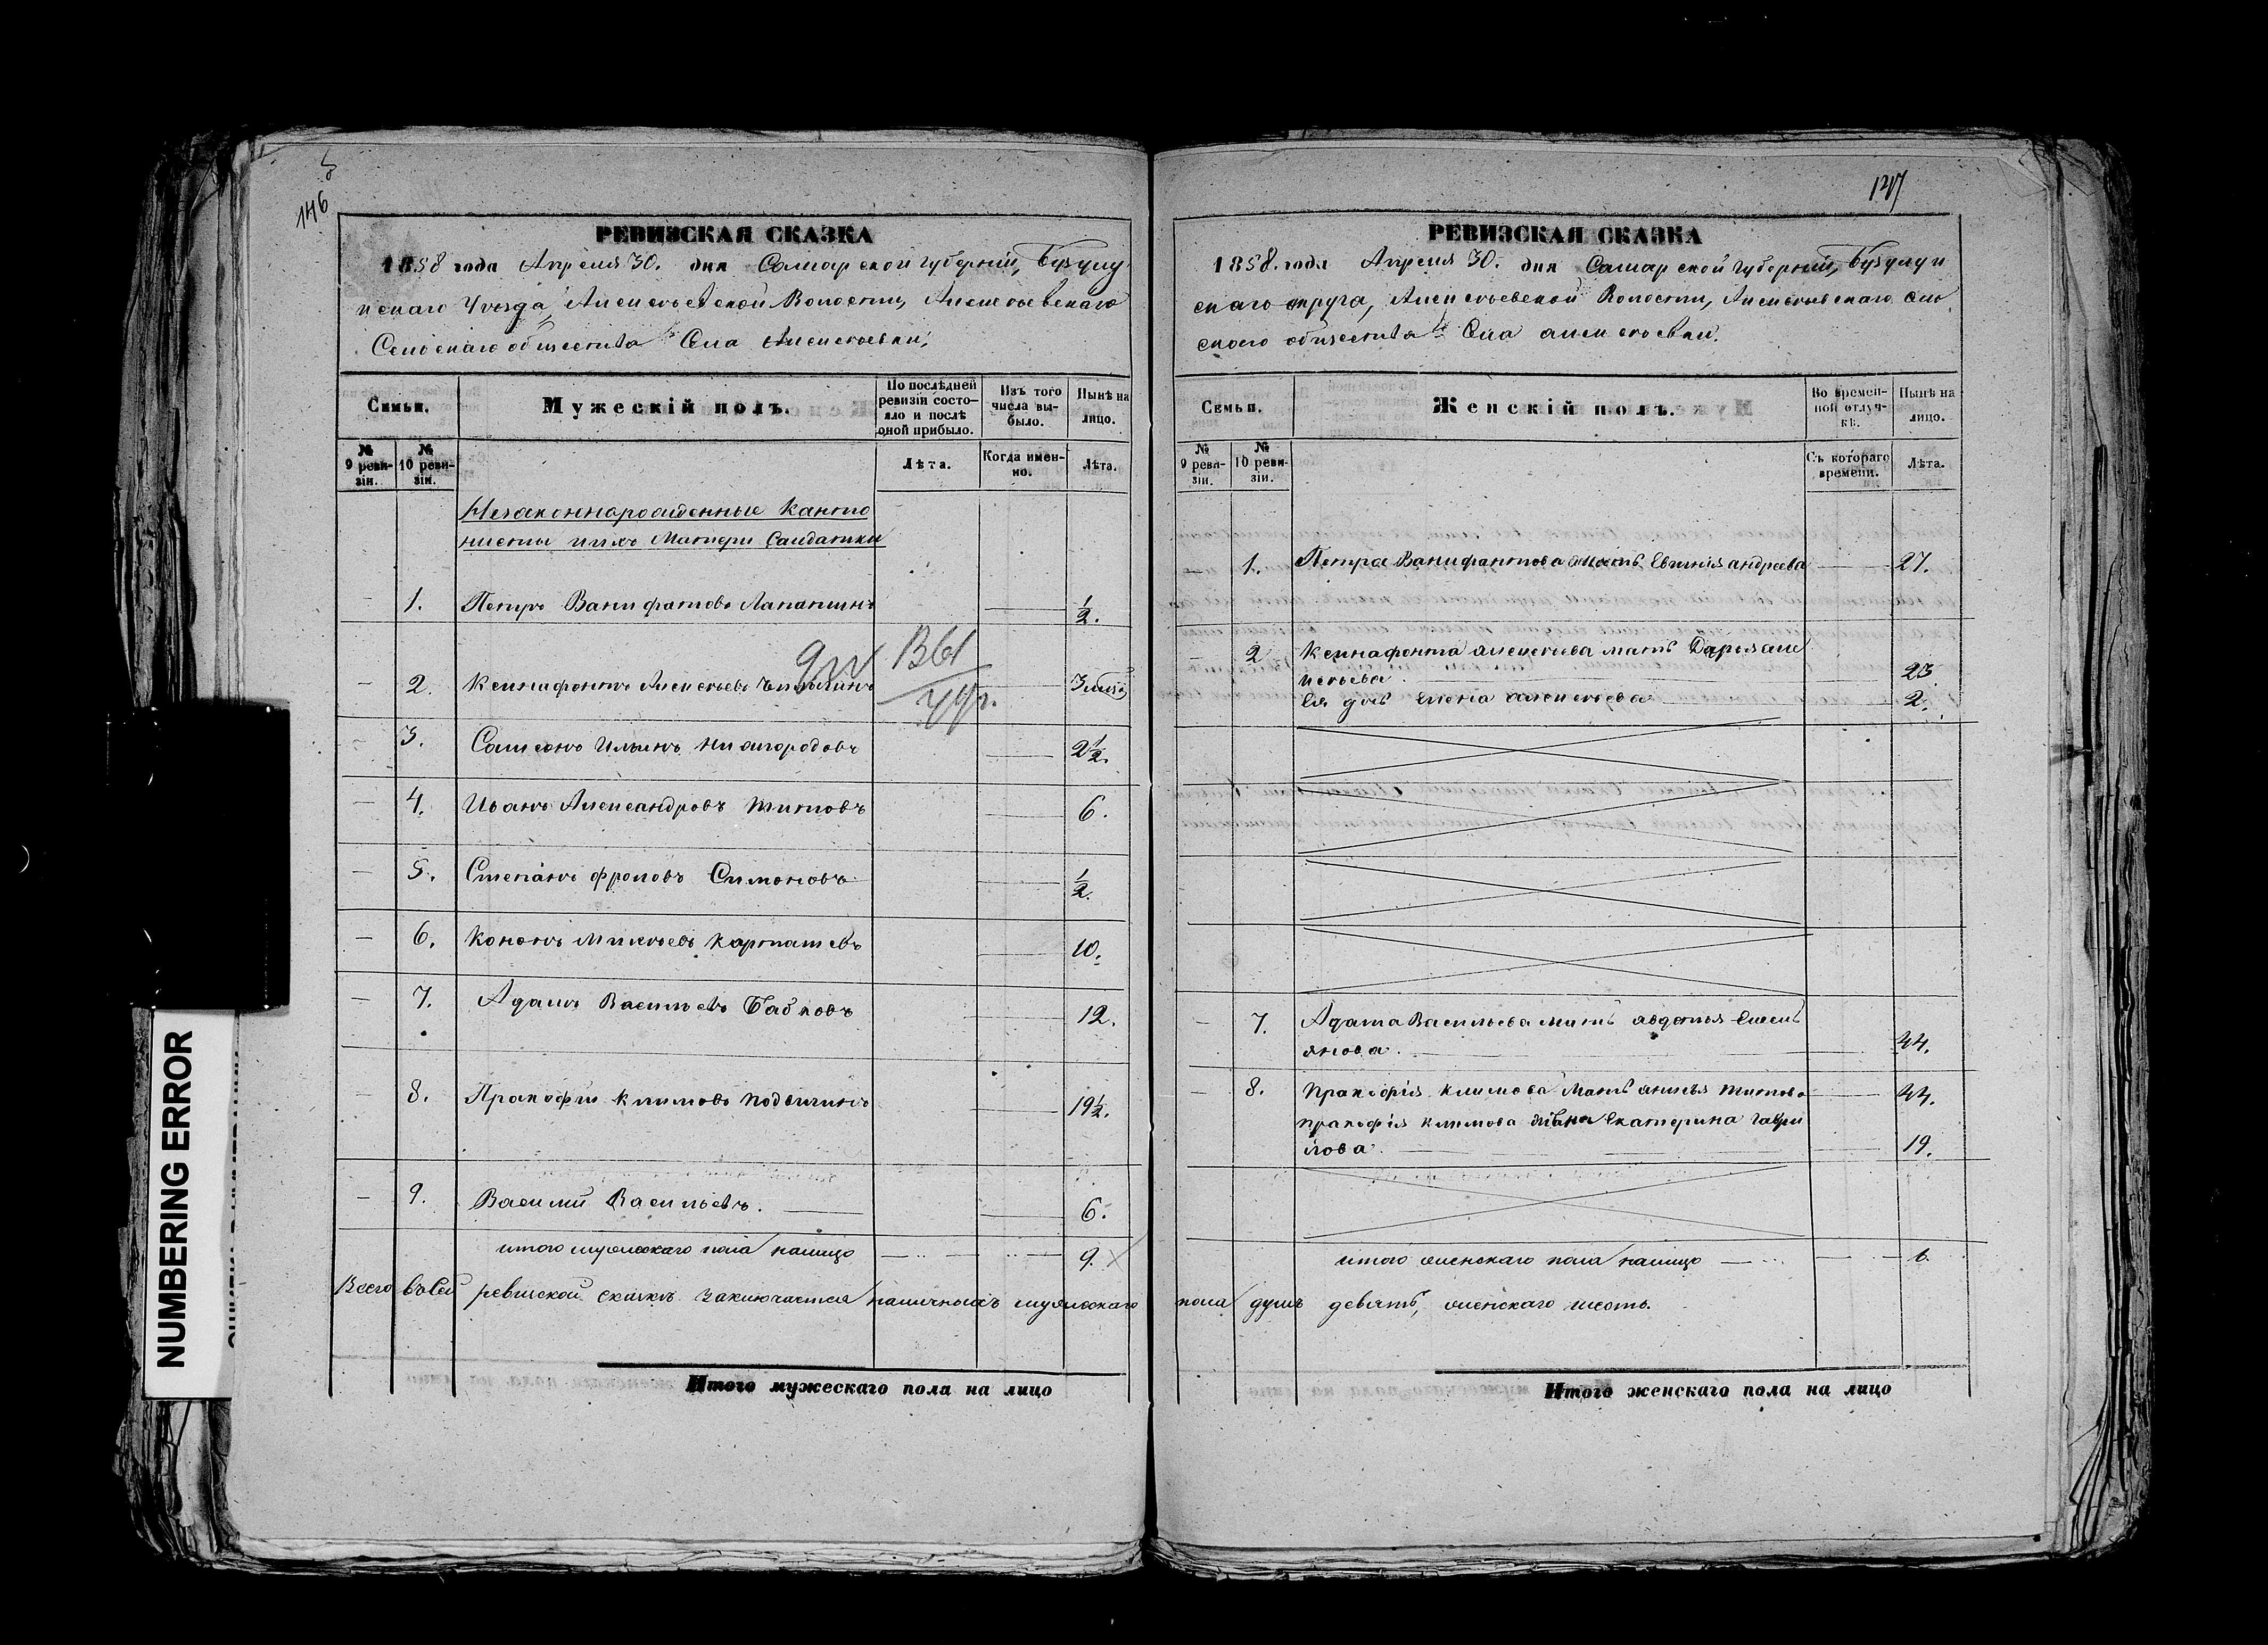 146
РЕВИЗСКАЯ СКАЗКА
1858 года Апреля 30. дня Самарской губерніи, Бузулу
кскаго Уѣзда, Алексѣевской Волости, Алексѣевскаго
Сельскаго общества Села Алексѣевки,
Семьи.
Мужескій полъ.
По послѣдней ревизіи состо-
яло и послѣ
оной прибыло.
Изъ того
числа вы-
было.
Нынѣ на
лицо.
№
9 реви-
зіи.
№
10 реви-
зіи.
Лѣта.
Когда имен-
но.
Лѣта.
Незаконнорожденные Канто
нисты ихъ Матери Салдатки
1. Петръ Ванифатовъ Лапатинъ 1/2.
2. Ксинафонтъ Алексѣевъ 3
3. Самсонъ Ильинъ Нижгородовъ 2 1/2.
4. Иванъ Александровъ Титовъ 6.
5. Степанъ Фроловъ Симоновъ 1/2.
6. Кононъ Михѣевъ Карташевъ 10.
7. Адамъ Васильевъ Бабковъ 12.
8. Пракофій Климовъ 19 1/2.
9. Василій Васильевъ. 6.
итого мужескаго пола налицо 9.
Всего въ сей ревизской сказкѣ заключается наличныхъ мужескаго
Итого мужескаго пола на лицо
147
РЕВИЗСКАЯ СКАЗКА
1858. года Апреля 30. дня Самарской губерніи, Бузулук
скаго округа, Алексѣевской Волости, Алексѣевскаго сель
скаго общества Села Алексѣевки.
Семьи.
Женскій полъ.
Во времен-
ной отлуч-
кѣ.
Нынѣ на
лицо.
№
9 реви-
зіи.
№
10 реви-
зіи.
Съ котораго
времени.
Лѣта.
1. Петра Ванифантова мать Евгенія андреева 27.
2 Ксинафонта алексѣева мать Дарья але
ксѣева. 23.
Ея дочь Елена алексѣева 2.
7. Адама Васильева мать авдотья Емель
янова. 44.
8. Пракофія климова мать анисья титова 44.
пракофія климова жена Екатерина гаври
лова. 19.
итого женскаго пола налицо 6.
пола душъ девять, женскаго шесть.
Итого женскаго пола на лицо
NUMBERING ERROR